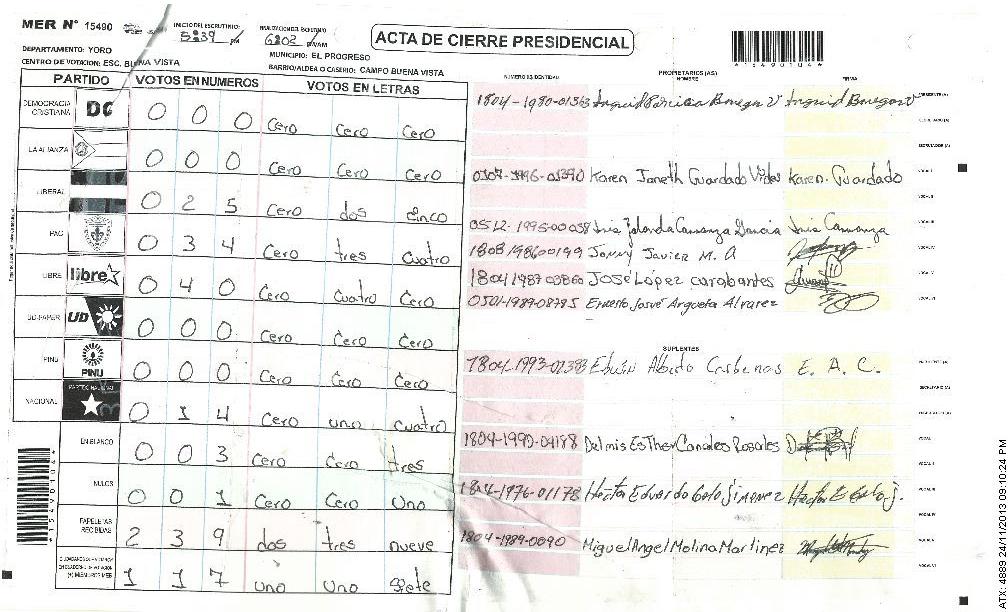 MER N° 15490
INICIO DEL ESCRUTINIO: 5:39 PM
6:02 P.M/AM
ACTA DE CIERRE PRESIDENCIAL
*15490104*
DEPARTAMENTO: YORO
MUNICIPIO: EL PROGRESO
CENTRO DE VOTACION: ESC. BUENA VISTA
BARRIO/ALDEA O CASERIO: CAMPO BUENA VISTA
PARTIDO VOTOS EN NUMEROS VOTOS EN LETRAS
DEMOCRACIA CRISTIANA DC 0 0 0 Cero Cero Cero
LA ALIANZA 0 0 0 Cero Cero Cero
LIBERAL 0 2 5 Cero dos Cinco
PAC 0 3 4 Cero tres Cuatro
LIBRE libre 0 4 0 Cero Cuatro Cero
UD-FAPER UD 0 0 0 Cero Cero Cero
PINU PINU 0 0 0 Cero Cero Cero
NACIONAL PARTIDO NACIONAL 0 1 4 Cero uno Cuatro
EN BLANCO 0 0 3 Cero Cero tres
NULOS 0 0 1 Cero Cero Uno
PAPELETAS RECIBIDAS 2 3 9 dos tres nueve
(+) MIEMBROS MER 1 1 7 uno Uno Siete
*15490104*
NUMERO IDENTIDAD PROPIETARIOS (AS) NOMBRE FIRMA
1804-1980-01363 PRESIDENTE (A)
SECRETARIO (A)
ESCRUTADOR (A)
Karen Janeth Guardado Karen. Guardado VOCAL I
VOCAL II
VOCAL III
1808198600199 Jonny Javier M. A VOCAL IV
1804 1987 03860 José López carabantes VOCAL V
0501-1989-08785 Ernesto Josué Argueta Alvarez VOCAL VI
SUPLENTES
1804-1993-01383 Edwin Alberto E. A. C. PRESIDENTE (A)
SECRETARIO (A)
1804-1990-04188 Delmis Esther Canales Rosales VOCAL I
VOCAL II
1804-1976-01178 Hector Eduardo Jimenez VOCAL III
VOCAL IV
1804-1989-0090 Miguel Angel Molina Martinez VOCAL V
VOCAL VI
ATX: 4889 24/11/2013 09:10:24 PM